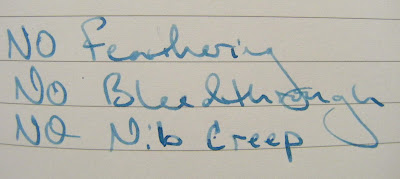 NO Feathering
No Bleedthrough
NO Nib Creep